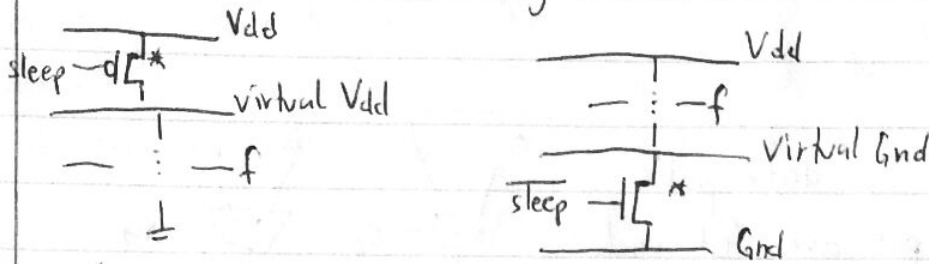 Vdd
sleep *
virtual Vdd
f
Vdd
f
Virtual Gnd
s̅l̅e̅e̅p̅ *
Gnd